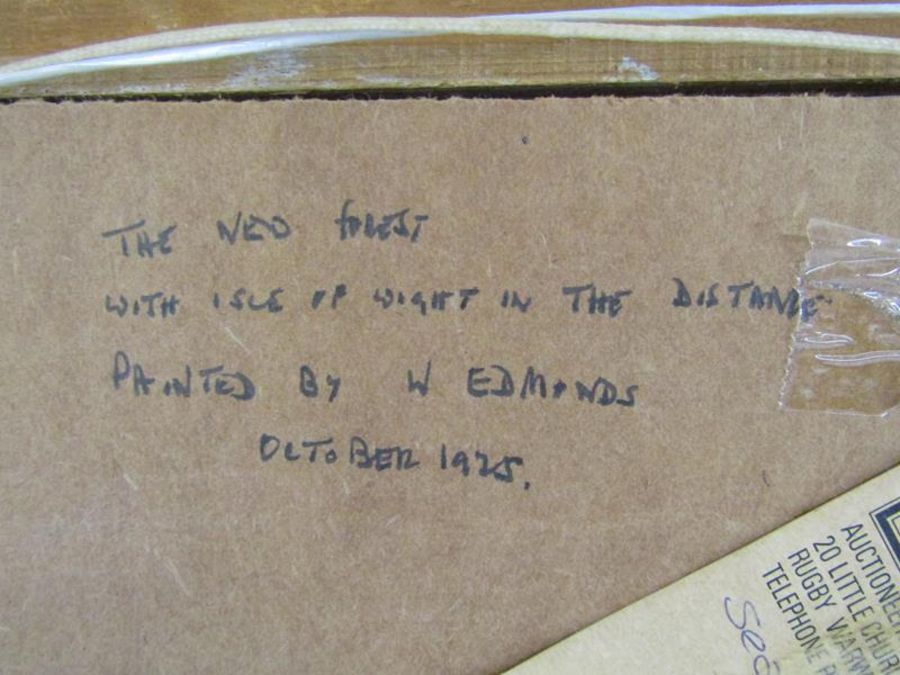 THE NEW FOREST
WITH ISLE OF WIGHT IN THE DISTANCE
PAINTED BY W EDMONDS
OCTOBER 1925.
AUCTIONEER
20 LITTLE CHUR
RUGBY WARW
TELEPHONE
Sea